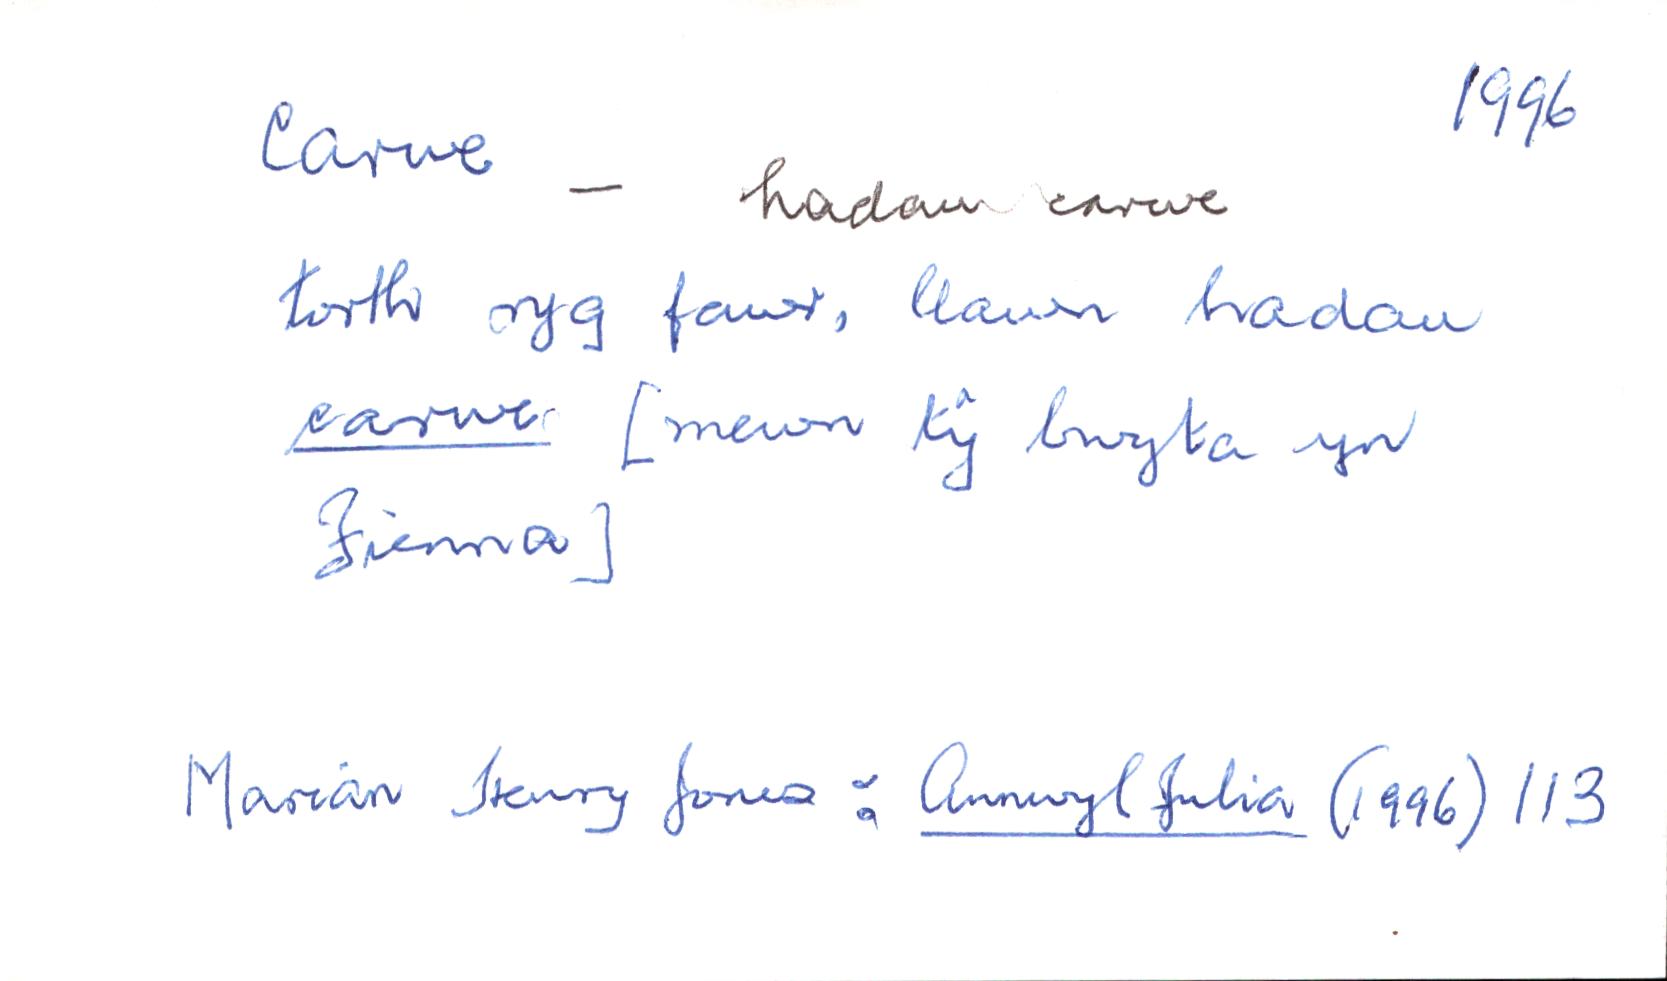 1996
Carwe
— hadau carwe
torth ryg fawr, llawn hadau
carwe [mewn tŷ bwyta yn
Fienna]
Marian Henry Jones : Annwyl Julia (1996) 113